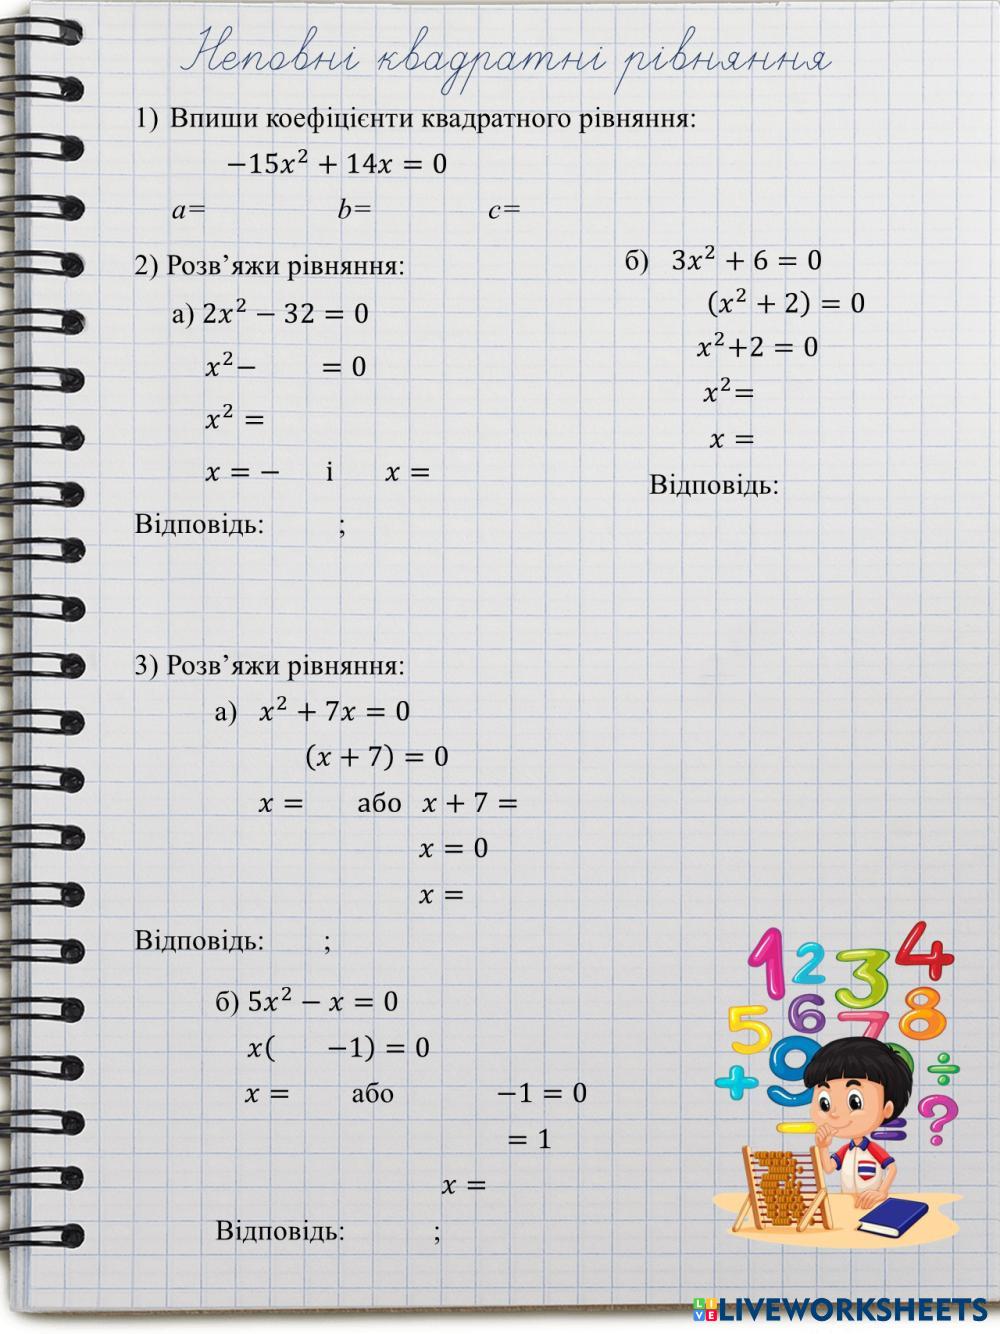 Неповні квадратні рівняння
1) Впиши коефіцієнти квадратного рівняння:
−15x² + 14x = 0
a= b= c=
2) Розв’яжи рівняння:
а) 2x² − 32 = 0
x²− = 0
x² =
x = − і x =
Відповідь: ;
б) 3x² + 6 = 0
(x² + 2) = 0
x²+2 = 0
x²=
x =
Відповідь:
3) Розв’яжи рівняння:
а) x² + 7x = 0
(x + 7) = 0
x = або x + 7 =
x = 0
x =
Відповідь: ;
б) 5x² − x = 0
x( −1) = 0
x = або −1 = 0
= 1
x =
Відповідь: ;
1 2 3 4
5 6 7 8
+ 9 ÷
− = ?
LIVE LIVEWORKSHEETS